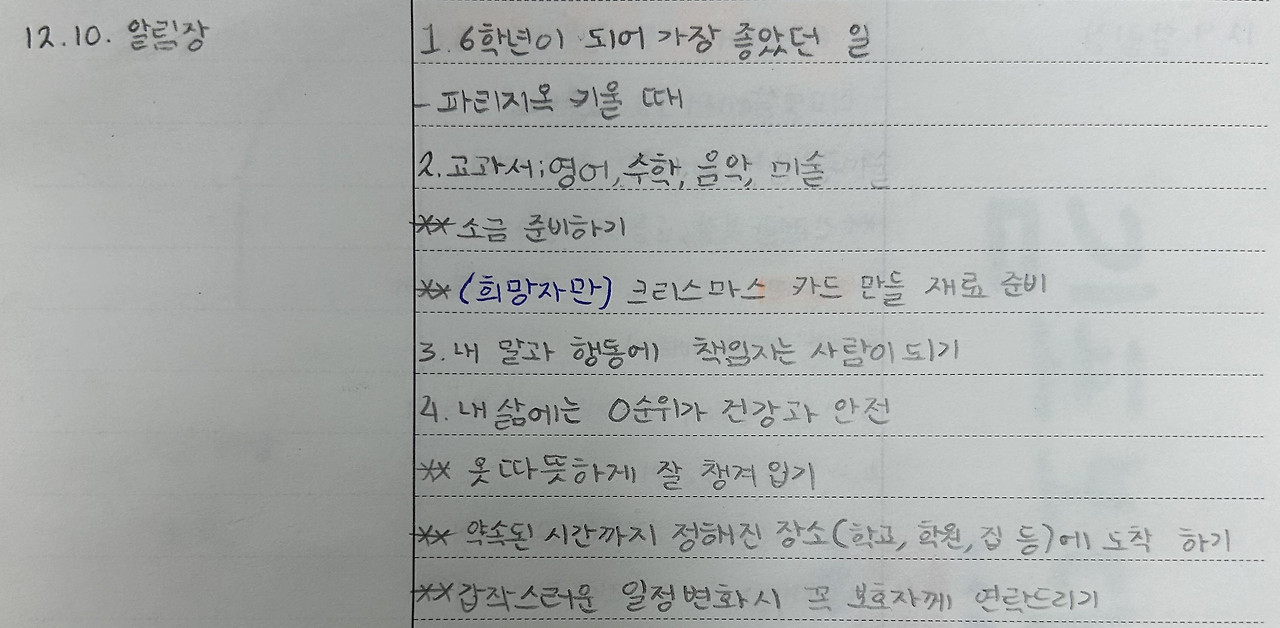 12.10. 알림장
1. 6학년이 되어 가장 좋았던 일
- 파리지옥 키울 때
2. 교과서;영어, 수학, 음악, 미술
** 소금 준비하기
** (희망자만) 크리스마스 카드 만들 재료 준비
3. 내 말과 행동에 책임지는 사람이 되기
4. 내 삶에는 0순위가 건강과 안전
** 옷 따뜻하게 잘 챙겨 입기
** 약속된 시간까지 정해진 장소(학교, 학원, 집 등)에 도착 하기
** 갑작스러운 일정변화시 꼭 보호자께 연락드리기